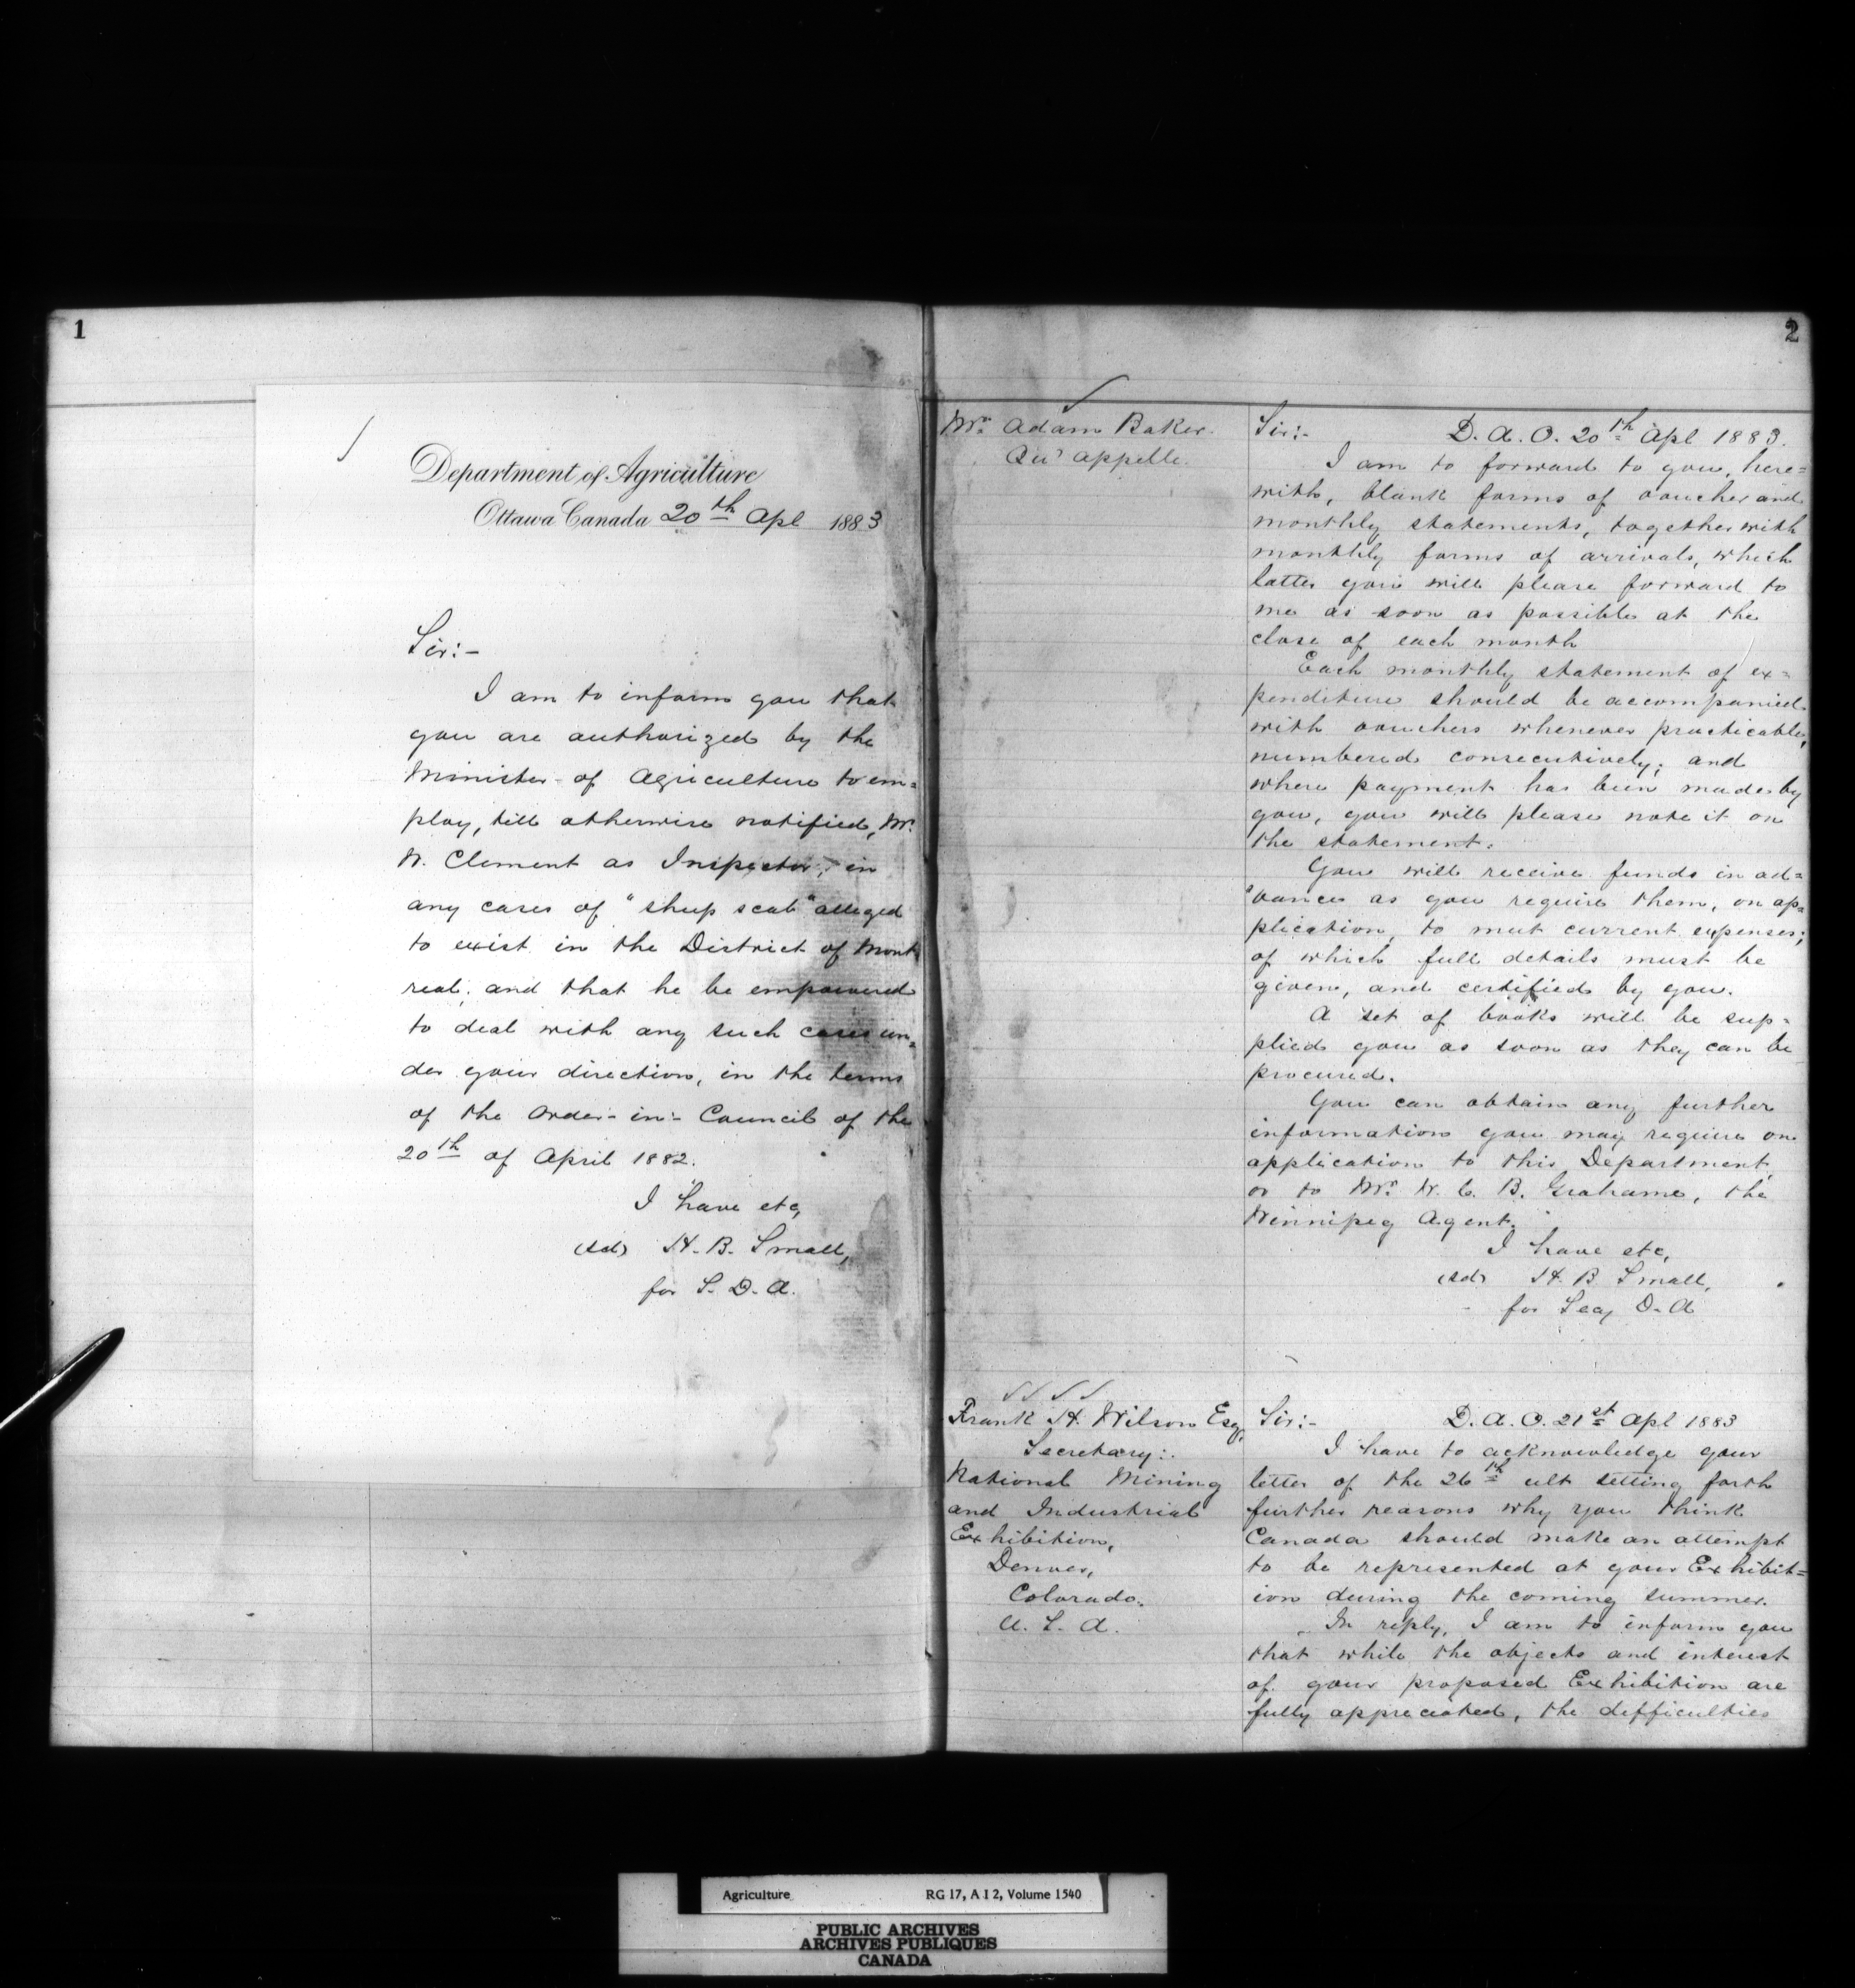 1
Department of Agriculture
Ottawa Canada 20th Apl 1883
Sir:-
I am to inform you that
you are authorized by the
Minister of Agriculture to em=
ploy, till otherwise notified, Mr.
W. Clement as Inspector, in
any cases of "sheep scab" alleged
to exist in the District of Mont
real; and that he be empowered
to deal with any such cases un=
der your direction, in the terms
of the Order-in-Council of the
20th of April 1882.
I have etc,
(sd) H. B. Small,
for S. D. A.
2
Mr. Adam Baker.
Qu'Appelle.
Sir:- D. A. O. 20th Apl 1883.
I am to forward to you, here=
with, blank forms of voucher and
monthly statements, together with
monthly forms of arrivals, which
latter you will please forward to
me as soon as possible at the
close of each month
Each monthly statement of ex=
penditure should be accompanied
with vouchers whenever practicable,
numbered consecutively; and
where payment has been made by
you, you will please note it on
the statement.
You will receive funds in ad=
vance as you require them, on ap=
plication, to meet current expenses;
of which full details must be
given, and certified by you.
A set of books will be sup=
plied you as soon as they can be
procured.
You can obtain any further
information you may require on
application to this Department,
or to Mr. W. C. B. Grahame, the
Winnipeg Agent.
I have etc,
(sd) H. B. Small,
for Secy D. A
Frank H. Wilson Esq,
Secretary:
National Mining
and Industrial
Exhibition,
Denver,
Colorado.
U. S. A.
Sir:- D. A. O. 21st Apl 1883
I have to acknowledge your
letter of the 26th ult setting forth
further reasons why you think
Canada should make an attempt
to be represented at your Exhibit=
ion during the coming summer.
In reply, I am to inform you
that while the objects and interest
of your proposed Exhibition are
fully appreciated, the difficulties
Agriculture RG 17, A I 2, Volume 1540
PUBLIC ARCHIVES
ARCHIVES PUBLIQUES
CANADA